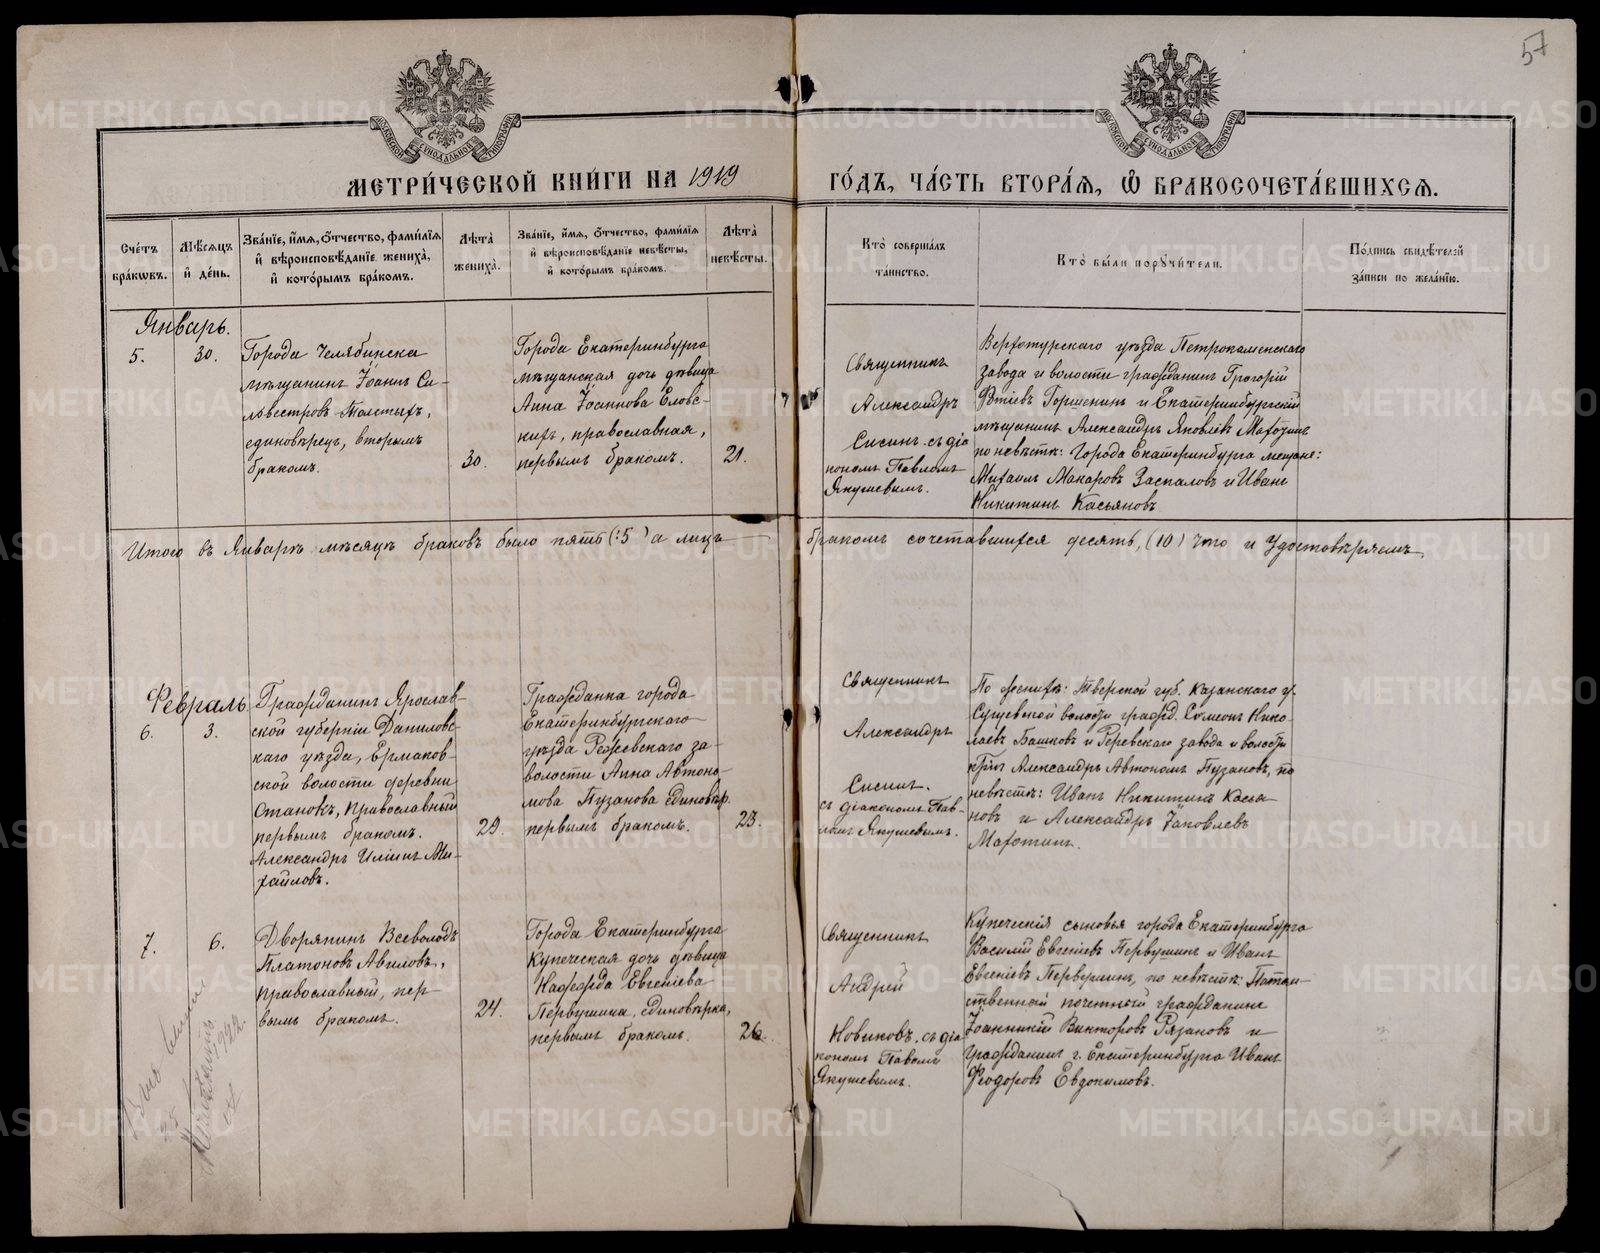 57
МОСКОВСКОЙ СѴНОДАЛЬНОЙ ТИПОГРАФІИ
МОСКОВСКОЙ СѴНОДАЛЬНОЙ ТИПОГРАФІИ
МЕТРИ́ЧЕСКОЙ КНИ́ГИ НА 1919 ГО́ДЪ, ЧА́СТЬ ВТОРА́Я, Ѽ БРАКОСОЧЕТА́ВШИХСЯ.
Сче́тъ бра́кѡвъ.
Мѣ́сяцъ и҆ де́нь.
Зва́нїе, и҆́мя, ѻ҆́тчество, фами́лїя и҆ вѣроисповѣ́данїе жениха̀, и҆ кото́рымъ бра́комъ.
Лѣ́та жениха̀.
Зва́нїе, и҆́мя, ѻ҆́тчество, фами́лїя и҆ вѣроисповѣ́данїе невѣ́сты, и҆ кото́рымъ бра́комъ.
Лѣ́та невѣ́сты.
Кто̀ соверша́лъ та́инство.
Кто̀ бы́ли порꙋчи́тели.
По́дпись свидѣ́телей за́писи по жела́нїю.
Январь.
5.
30.
Города Челябинска
мѣщанинъ Іоаннъ Си-
львестровъ Толстыхъ,
единовѣрецъ, вторымъ
бракомъ.
30.
Города Екатеринбурга
мѣщанская дочь дѣвица
Анна Іоаннова Еловс-
кихъ, православная,
первымъ бракомъ.
21.
Священникъ
Александръ
Сисинъ. съ діа
кономъ Павломъ
Якушевымъ.
Верхотурскаго уѣзда Петрокаменскаго
завода и волости гражданинъ Григорій
Фотіевъ Горшенинъ и Екатеринбургскій
мѣщанинъ Александръ Яковлевъ Махотинъ
по невѣстѣ: Города Екатеринбурга мещане:
Михаилъ Макаровъ Заспаловъ и Иванъ
Никитинъ Касьяновъ
Итого въ Январѣ мѣсяцѣ браковъ было пять (:5) а лицъ бракомъ сочетавшихся десять, (10) что и Удостовѣряемъ.
Февраль
6.
3.
Гражданинъ Ярослав-
ской губерніи Даниловс-
каго уѣзда, Ермаков-
ской волости деревни
Становъ, Православный
первымъ бракомъ.
Александръ Иліинъ Ми-
хайловъ.
29.
Гражданка города
Екатеринбургскаго
уѣзда Режевскаго за-
волости Анна Автоно-
мова Пузанова единовѣр.
первымъ бракомъ.
23.
Священникъ
Александръ
Сисинъ.
съ діакономъ Пав-
ломъ Якушевымъ.
По женихѣ: Тверской губ. Казанскаго у.
Сушевской волости гражд. Симеонъ Нико-
лаевъ Башковъ и Режевскаго завода и волости
Александръ Автоном. Пузановъ, по
невѣстѣ: Иванъ Никитинъ Касья-
новъ и Александръ Іаковлевъ
Махотинъ.
7.
6.
Дворянинъ Всеволодъ
Платоновъ Авиловъ,
православный, пер
вымъ бракомъ.
24.
Города Екатеринбурга
Купеческая дочь дѣвица
Евгеніева
Первушина, единовѣрка,
первымъ бракомъ.
26.
Священникъ
Андрей
Новиковъ. съ діа
кономъ Павломъ
Якушевымъ.
Купеческія сыновья города Екатеринбурга
Василій Евгеніевъ Первушинъ и Иванъ
Евгеніевъ Первушинъ, по невѣстѣ: Потом-
ственный почетный гражданинъ
Іоанникій Викторовъ Рязановъ и
гражданинъ г. Екатеринбурга Иванъ
Ѳеодоровъ Евдокимовъ.
1922.
METRIKI.GASO-URAL.RU